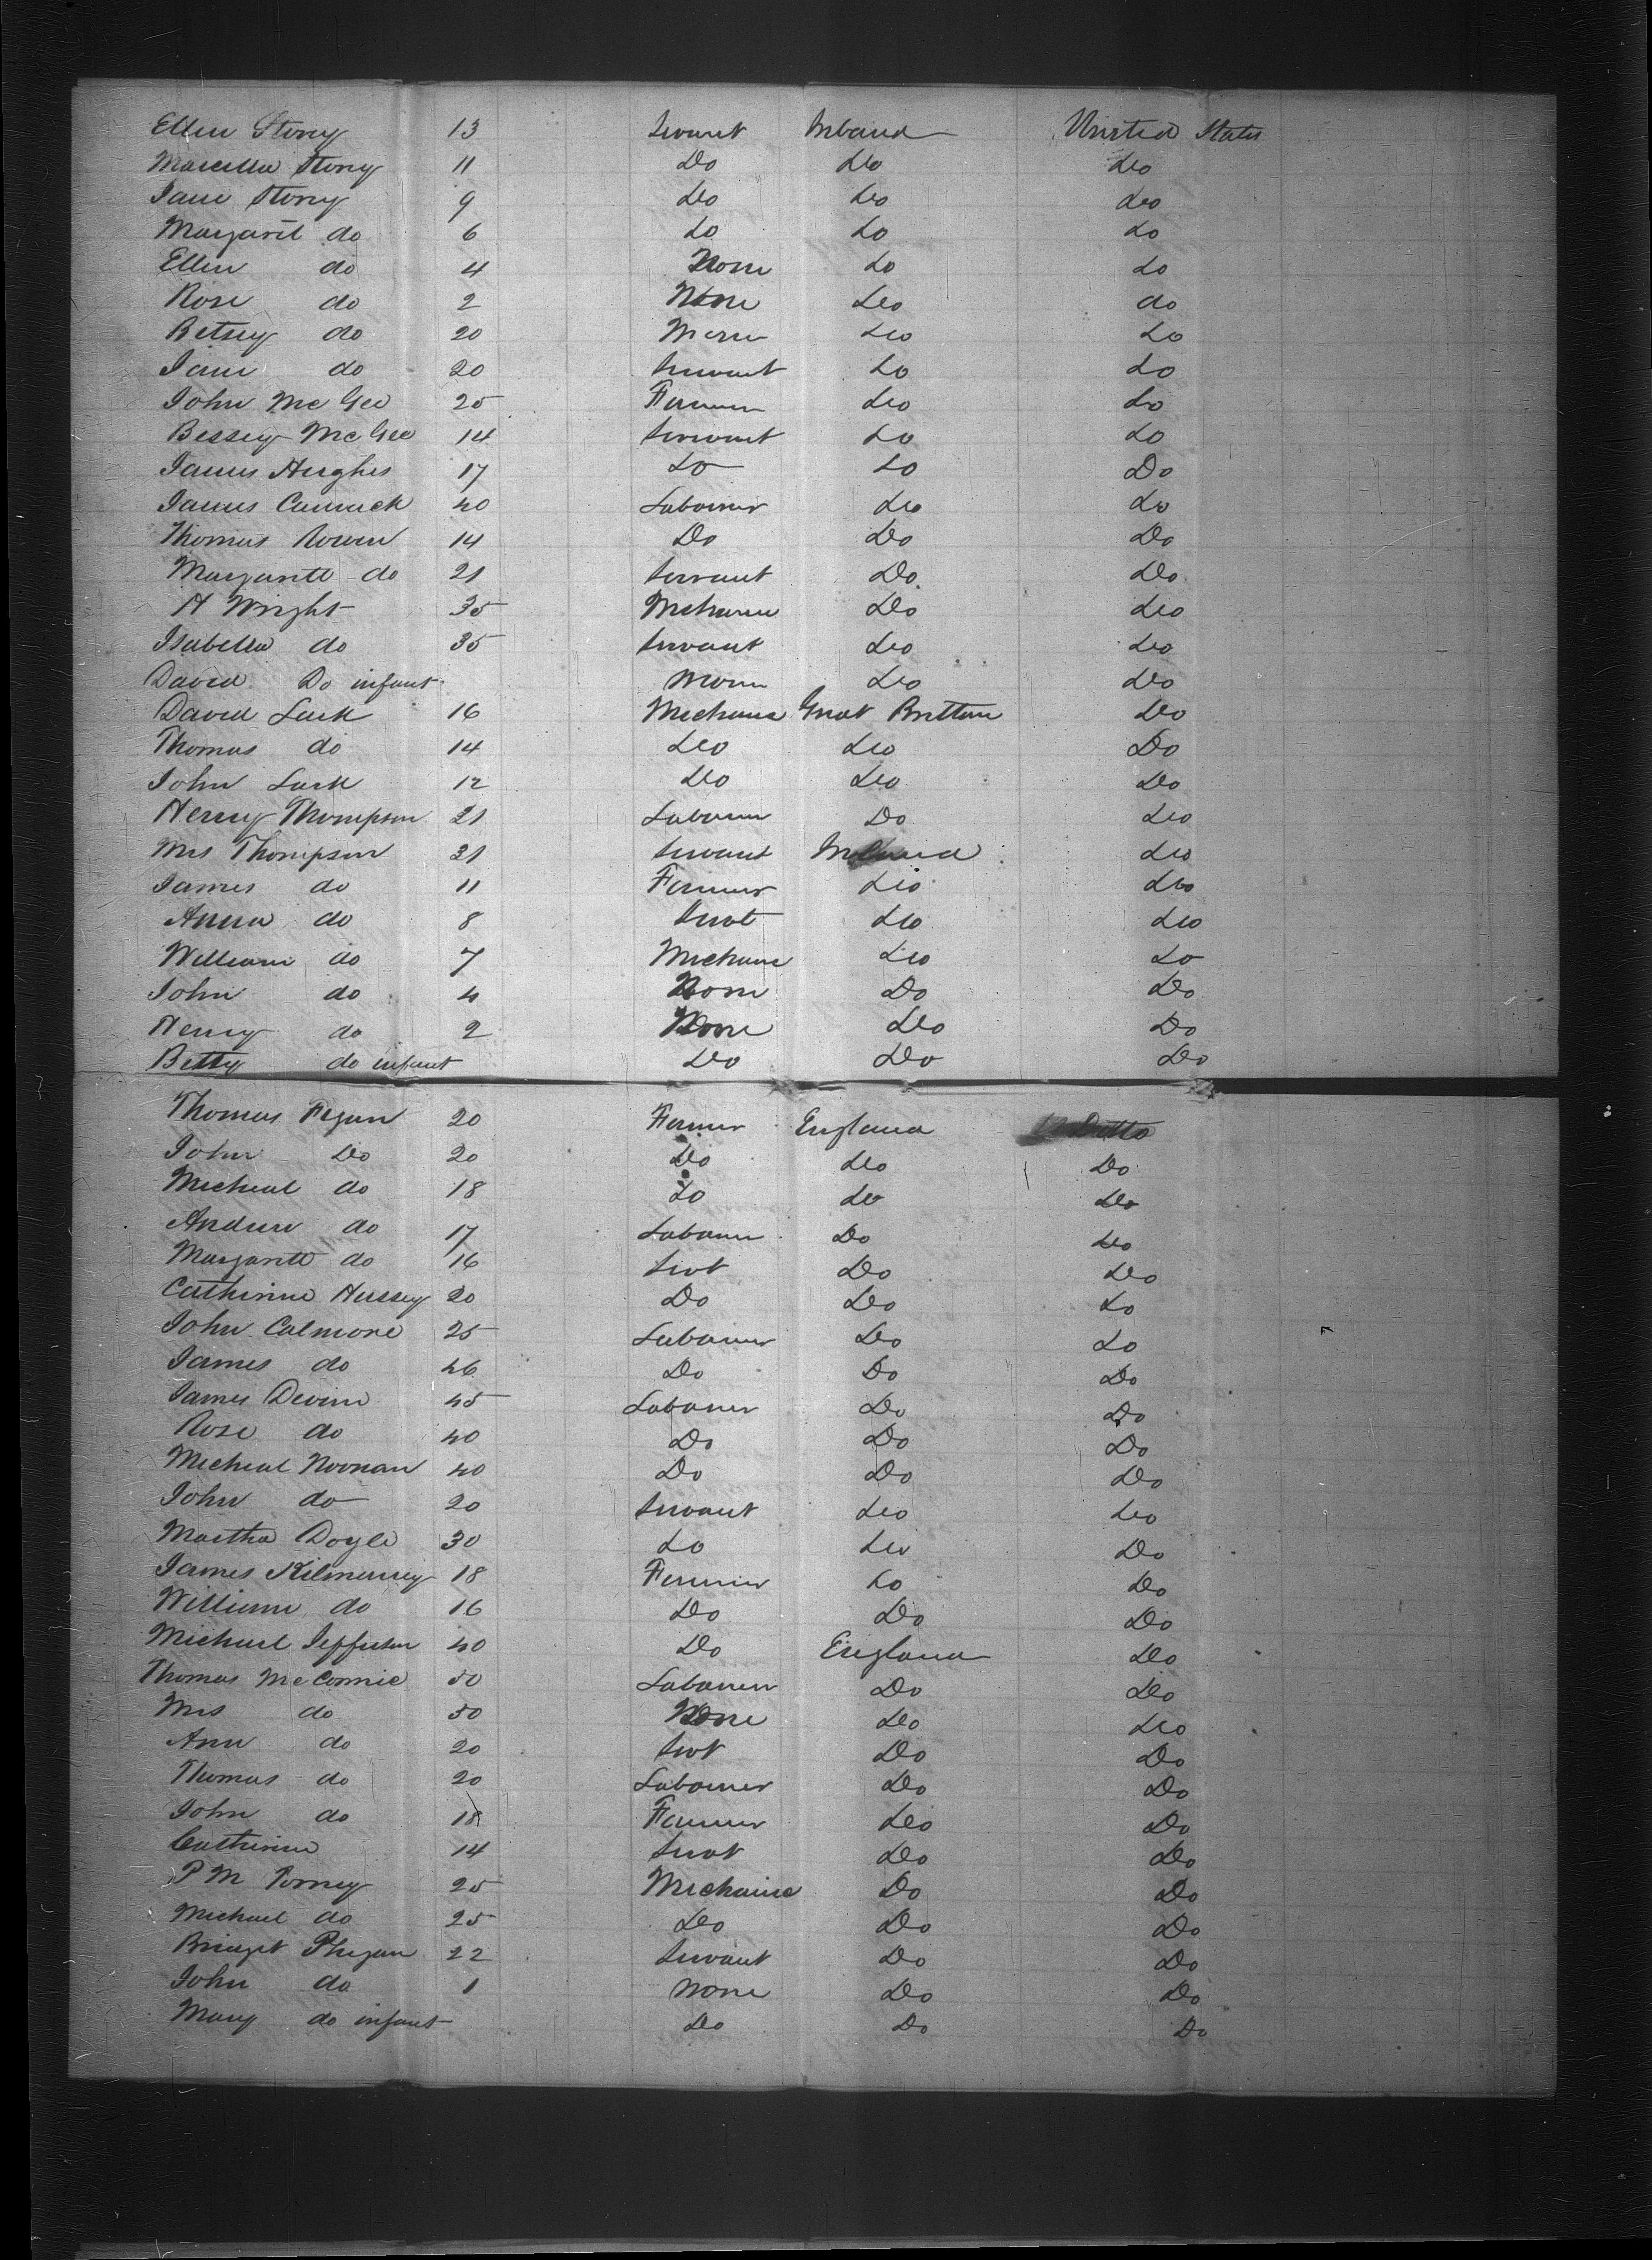 Ellen Stony 13 Servant Ireland United States
Marcella Stony 11 Do Do Do
Jane Stony 9 Do Do Do
Margaret do 6 Do Do Do
Ellen do 4 None Do Do
Rose do 2 None Do do
Betsey do 20 None Do Do
Jane do 20 Servant Do Do
John McGee 25 Farmer Do Do
Bessey McGee 14 Servant Do Do
James Hughes 17 Do Do Do
James 40 Labourer Do Do
Thomas 14 Do Do Do
Margarett do 21 Servant Do Do
H Wright 35 Mechanic Do Do
Isabella do 35 Servant Do Do
David Do infant None Do Do
David 16 Mechanic Great Brittan Do
Thomas do 14 Do Do Do
John 12 Do Do Do
Henry Thompson 21 Labourer Do Do
Mrs Thompson 31 Servant Ireland Do
James do 11 Farmer Do Do
Anna do 8 Servt Do Do
William do 7 Mechanic Do Do
John do 4 None Do Do
Henry do 2 None Do Do
Betty do infant Do Do Do
Thomas Fegan 20 Farmer England Ditto
John Do 20 Do Do Do
Micheal do 18 Do Do Do
Andrew do 17 Labourer Do Do
Margarett do 16 Servt Do Do
Catherine Hussey 20 Do Do Do
John Calmore 25 Labourer Do Do
James do 46 Do Do Do
James Devine 45 Labourer Do Do
Rose do 40 Do Do Do
Micheal Noonan 40 Do Do Do
John do 20 Servant Do Do
Martha Doyle 30 Do Do Do
James Kilmurrey 18 Farmer Do Do
William do 16 Do Do Do
Michael Jefferson 40 Do England Do
Thomas McCormic 50 Labourer Do Do
Mrs do 50 None Do Do
Ann do 20 Servt Do Do
Thomas do 20 Labourer Do Do
John do 18 Farmer Do Do
Catherine 14 Servt Do Do
P M 25 Mechanic Do Do
Michael do 25 Do Do Do
Bridget Phegan 22 Servant Do Do
John do 1 None Do Do
Mary do infant Do Do Do